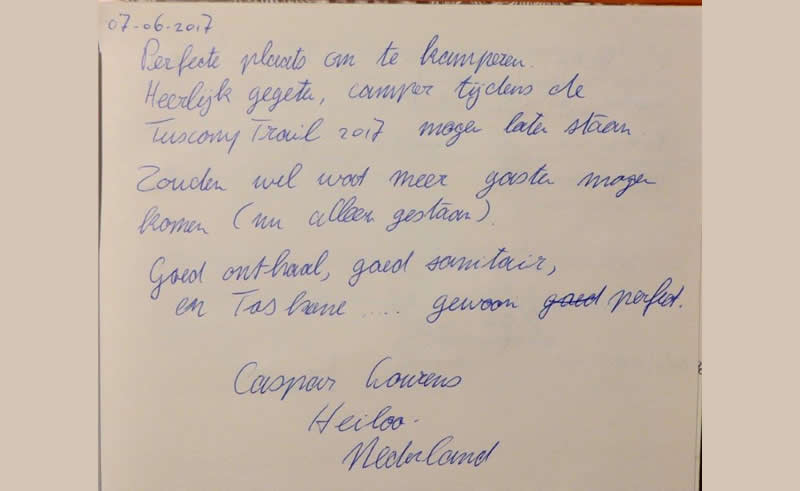 07-06-2017
Perfecte plaats om te kamperen.
Heerlijk gegeten, camper tijdens de
Tuscany Trail 2017 mogen laten staan
Zouden wel wat meer gasten mogen
komen (nu alleen gestaan).
Goed onthaal, goed sanitair,
en Toskane .... gewoon goed perfect.
Caspar Lourens
Heiloo.
Nederland